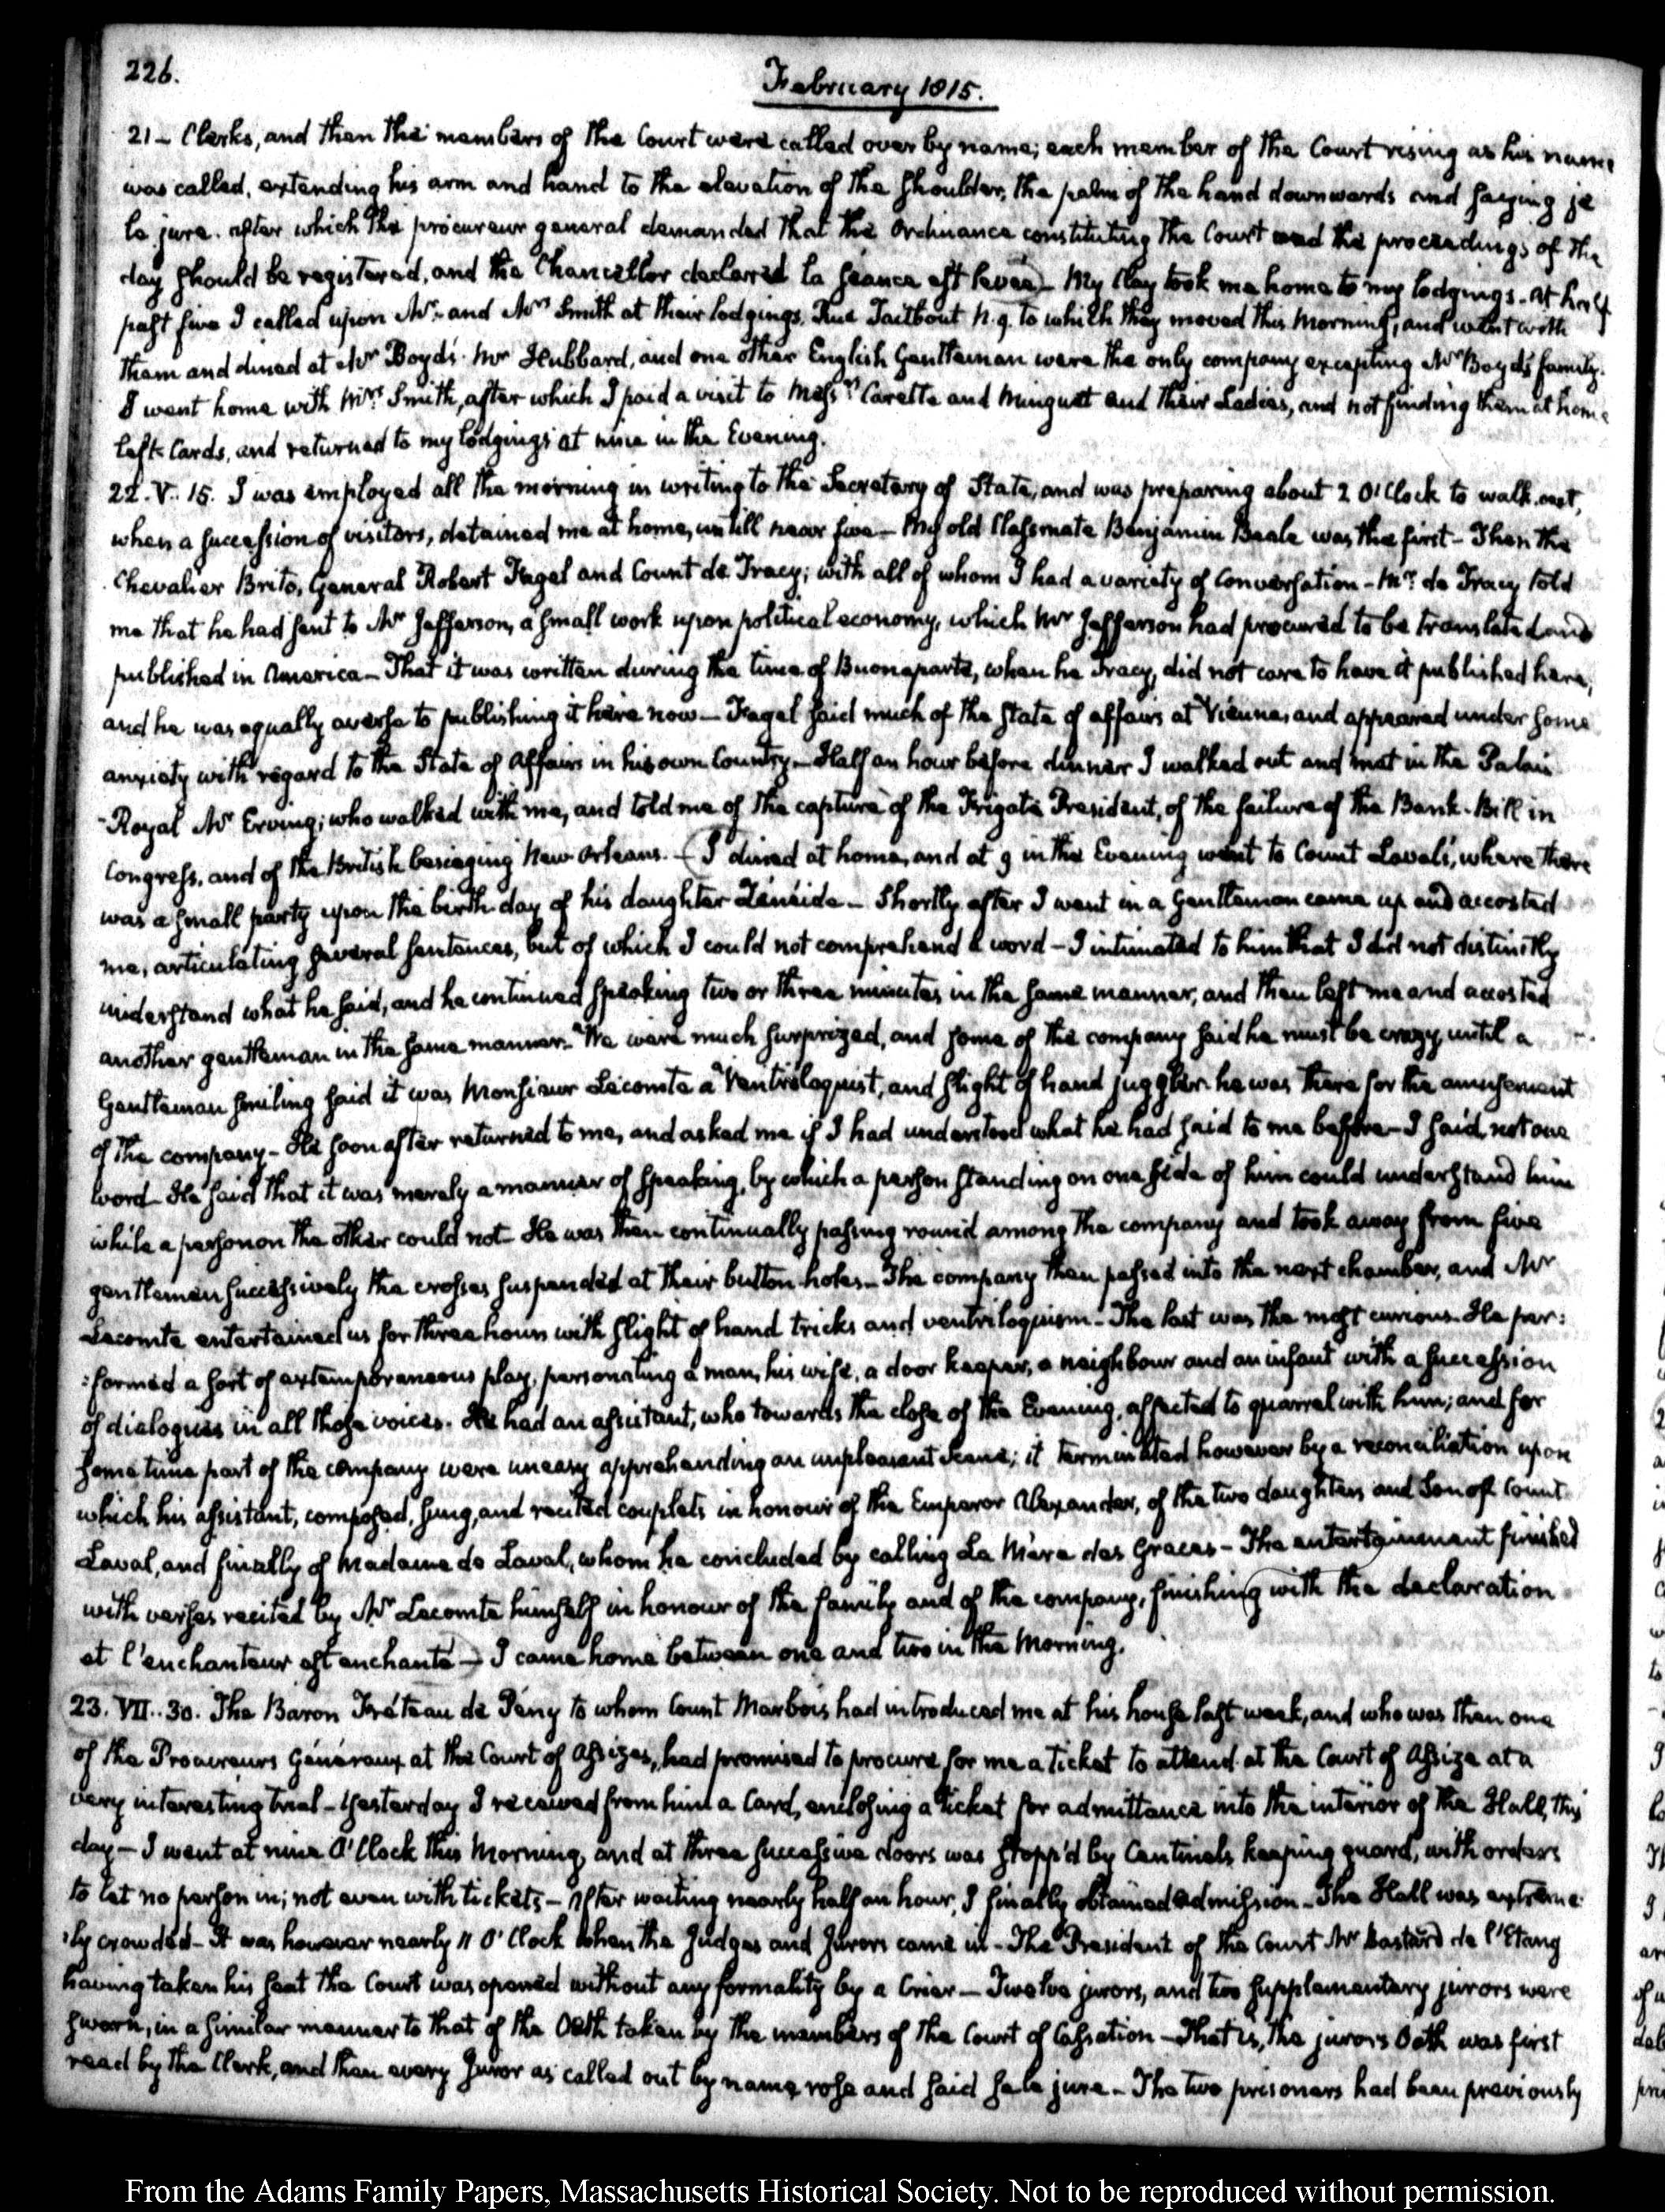 226.
February 1815.
21 - Clerks, and then the members of the Court were called over by name; each member of the Court rising as his name
was called, extending his arm and hand to the elevation of the shoulder, the palm of the hand downwards and saying je
le jure. after which the procureur general demanded that the Ordinance constituting the Court and the proceedings of the
day should be registered, and the Chancellor declared la seance est levée - Mr Clay took me home to my lodgings - at half
past five I called upon Mr. and Mrs Smith at their lodgings, Rue Taitbout N. 9. to which they moved this Morning, and went with
them and dined at Mr Boyd's. Mr Hubbard, and one other English Gentleman were the only company excepting Mr Boyd's family.
I went home with Mrs. Smith, after which I paid a visit to Messrs. Carette and Minguet and their Ladies, and not finding them at home
left Cards, and returned to my lodgings at nine in the Evening.
22. V. 15. I was employed all the morning in writing to the Secretary of State, and was preparing about 2 O'Clock to walk out,
when a succession of visitors, detained me at home, untill near five - My old Classmate Benjamin Beale was the first - Then the
Chevalier Brito, General Robert Fagel and Count de Tracy; with all of whom I had a variety of Conversation - Mr. de Tracy told
me that he had sent to Mr Jefferson, a small work upon political economy, which Mr Jefferson had procured to be translated and
published in America - That it was written during the time of Buonaparte, when he Tracy, did not care to have it published here,
and he was equally averse to publishing it here now - Fagel said much of the state of affairs at Vienna, and appeared under some
anxiety with regard to the State of Affairs in his own Country - Half an hour before dinner I walked out and met in the Palais
-Royal Mr Erving; who walked with me, and told me of the capture of the Frigate President, of the failure of the Bank-Bill in
Congress, and of the British besieging New-Orleans. - I dined at home, and at 9 in the Evening went to Count Laval's, where there
was a small party upon the birth-day of his daughter Zénéide - Shortly after I went in a Gentleman came up and accosted
me, articulating several sentences, but of which I could not comprehend a word - I intimated to him that I did not distinctly
understand what he said, and he continued speaking two or three minutes in the same manner, and then left me and accosted
another gentleman in the same manner. We were much surprized, and some of the company said he must be crazy, until a
Gentleman smiling said it was Monsieur Lecomte a Ventriloquist, and slight of hand juggler. he was there for the amusement
of the company - He soon after returned to me, and asked me if I had understood what he had said to me before - I said, not one
word - He said that it was merely a manner of speaking, by which a person standing on one side of him could understand him
while a person on the other could not - He was then continually passing round among the company and took away from five
gentlemen successively the crosses suspended at their button-holes - The company then passed into the next chamber, and Mr
Lecomte entertained us for three hours with slight of hand tricks and ventriloquism - The last was the most curious. He per:
:formed a sort of extemporaneous play, personating a man, his wife, a door keeper, a neighbour and an infant with a succession
of dialogues in all those voices. He had an assistant, who towards the close of the Evening, affected to quarrel with him; and for
some time part of the company were uneasy apprehending an unpleasant scene; it terminated however by a reconciliation upon
which his assistant, composed, sung, and recited couplets in honour of the Emperor Alexander, of the two daughters and Son of Count
Laval, and finally of Madame de Laval, whom he concluded by calling La Mère des Graces - The entertainment finished
with verses recited by Mr Lecomte himself in honour of the family and of the company, finishing with the declaration
et l'enchanteur est enchanté - I came home between one and two in the Morning.
23. VII. 30. The Baron Fréteau de Pény to whom Count Marbois had introduced me at his house last week, and who was then one
of the Procureurs Généraux at the Court of Assizes, had promised to procure for me a ticket to attend at the Court of Assize at a
very interesting trial - Yesterday I received from him a Card, enclosing a ticket for admittance into the interior of the Hall, this
day - I went at nine O'Clock this Morning, and at three successive doors was stopp'd by Centinels keeping guard, with orders
to let no person in; not even with tickets - After waiting nearly half an hour, I finally obtained admission - The Hall was extreme:
:ly crowded - It was however nearly 11 O'Clock when the Judges and Jurors came in - The President of the Court Mr Bastard de l'Etang
having taken his seat the Court was opened without any formality by a Crier - Twelve jurors, and two supplementary jurors were
sworn, in a similar manner to that of the Oath taken by the members of the Court of Cassation - That is, the jurors Oath was first
read by the Clerk, and then every Juror as called out by name, rose and said je le jure - The two prisoners had been previously
From the Adams Family Papers, Massachusetts Historical Society. Not to be reproduced without permission.